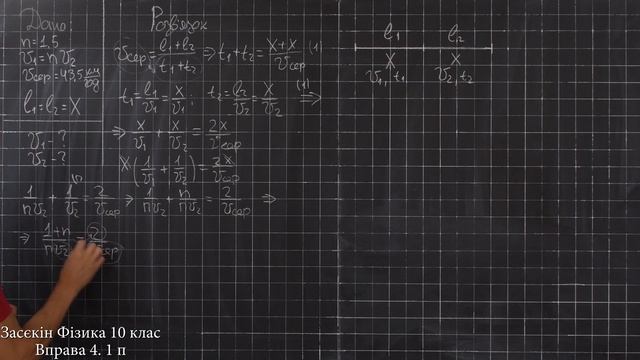 Дано:
n=1,5
υ₁=nυ₂
υсер=43,5 км/год
l₁=l₂=X
υ₁-?
υ₂-?
Розв'язок
υсер = (l₁+l₂)/(t₁+t₂) ⇒ t₁+t₂ = (X+X)/υсер (1)
t₁ = l₁/υ₁ = X/υ₁; t₂ = l₂/υ₂ = X/υ₂ (1)⇒
⇒ X/υ₁ + X/υ₂ = 2X/υсер
X(1/υ₁ + 1/υ₂) = 2X/υсер
1/nυ₂ + 1/υ₂ = 2/υсер ⇒ 1/nυ₂ + n/nυ₂ = 2/υсер ⇒
⇒ (1+n)/nυ₂ = 2/υсер
l₁ l₂
X X
υ₁, t₁ υ₂, t₂
Засєкін Фізика 10 клас
Вправа 4. 1 п